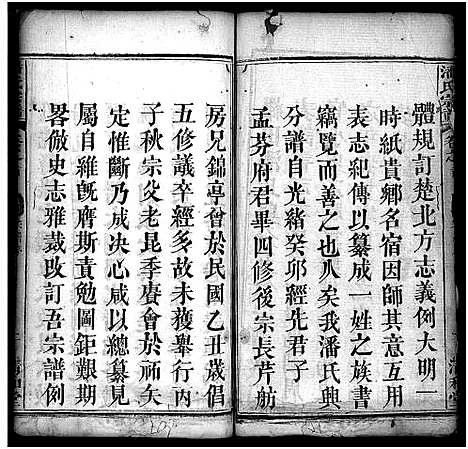 體規訂楚北方志義例大明一
時紙貴鄉名宿因師其意互用
表志紀傳以纂成一姓之族書
竊覽而善之也久矣我潘氏興
分譜自光緒癸卯經先君子
孟芬府君畢四修後宗長芹舫
房兄錦亭曾於民國乙丑歲倡
五修議卒經多故未獲舉行丙
子秋宗炎老昆季賡會於祏矢
定惟斷乃成決心咸以總纂見
屬自維既膺斯責勉圖鉅艱期
畧倣史志雅裁改訂吾宗譜例